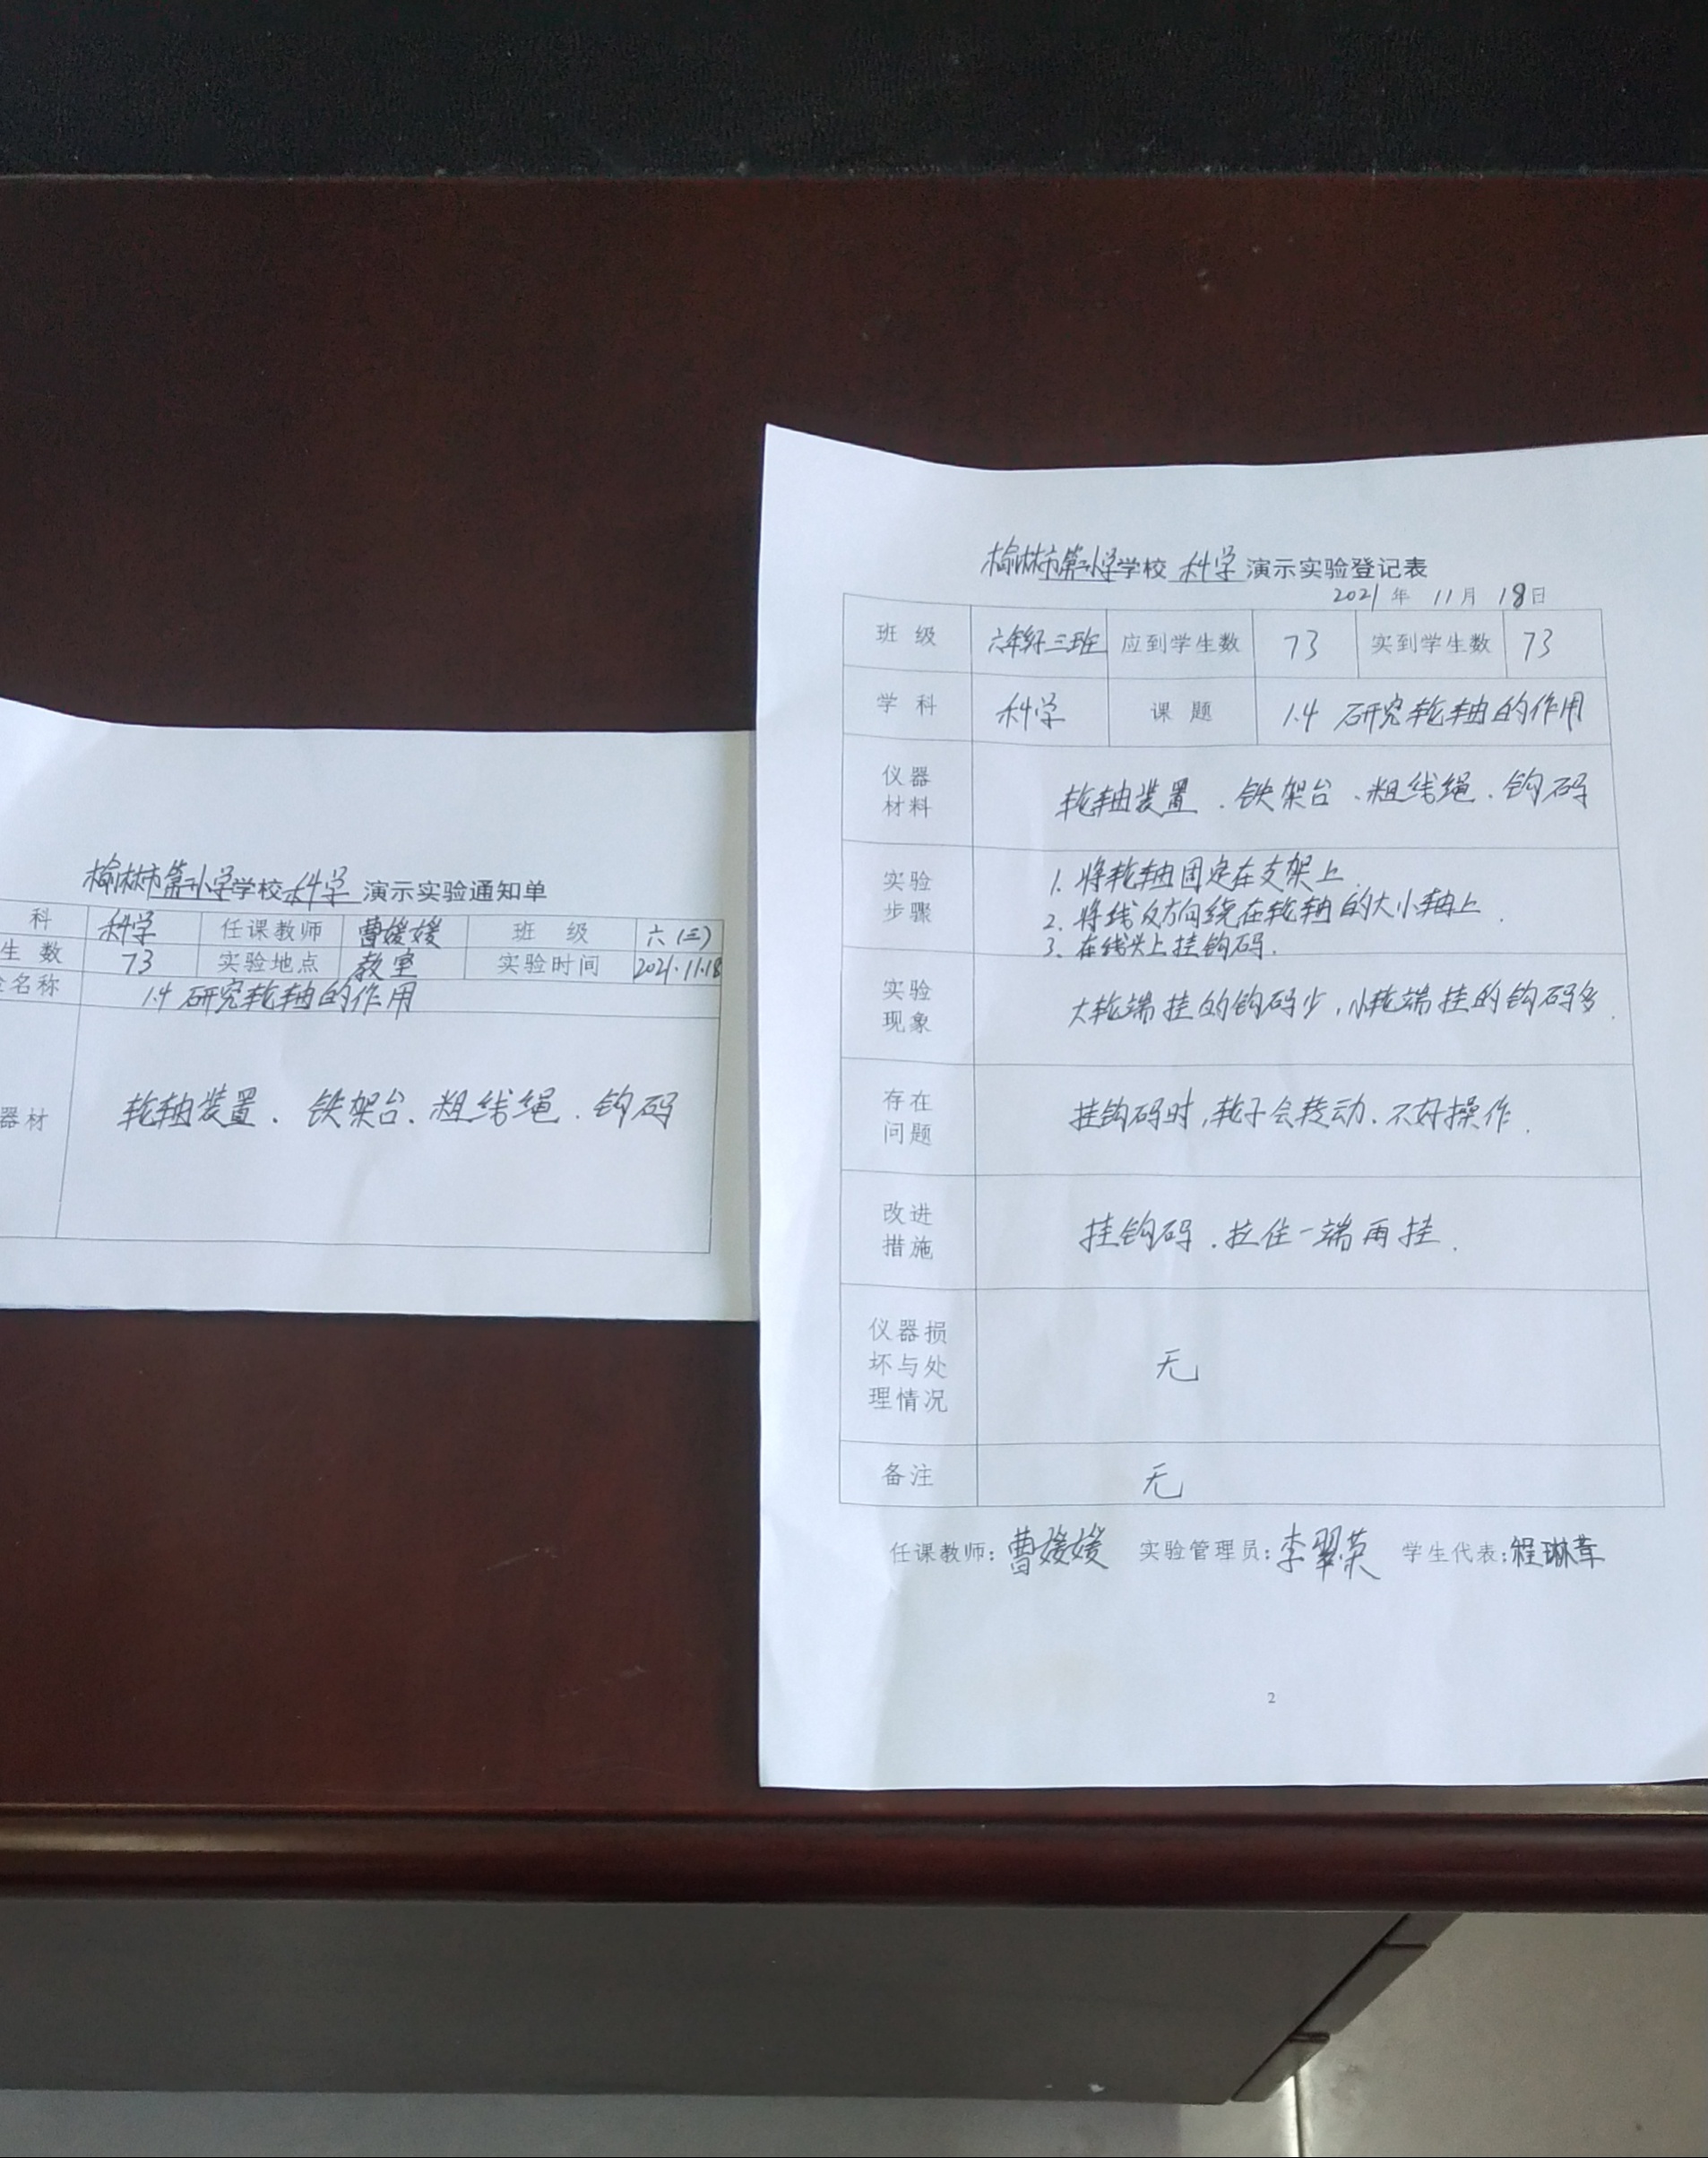 榆林市第二小学学校 科学 演示实验通知单
科 科学 任课教师 曹媛媛 班 级 六(三)
生 数 73 实验地点 教室 实验时间 2021.11.18
名称 1.4 研究轮轴的作用
器材 轮轴装置、铁架台、粗线绳、钩码
榆林市第二小学学校 科学 演示实验登记表
2021 年 11 月 18 日
班 级 六年级三班 应到学生数 73 实到学生数 73
学 科 科学 课 题 1.4 研究轮轴的作用
仪器
材料
轮轴装置、铁架台、粗线绳、钩码
实验
步骤
1. 将轮轴固定在支架上.
2. 将线反方向绕在轮轴的大小轴上.
3、在线头上挂钩码.
实验
现象
大轮端挂的钩码少,小轮端挂的钩码多.
存在
问题
挂钩码时,轮子会转动、不好操作.
改进
措施
挂钩码、拉住一端再挂.
仪器损
坏与处
理情况
无
备注
无
任课教师: 曹媛媛 实验管理员: 李翠荣 学生代表: 程琳
2